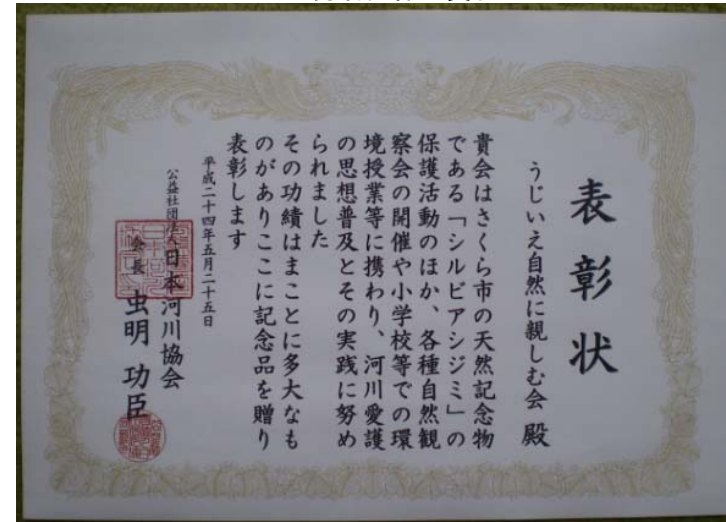 表彰状
うじいえ自然に親しむ会 殿
貴会はさくら市の天然記念物
である「シルビアシジミ」の
保護活動のほか、各種自然観
察会の開催や小学校等での環
境授業等に携わり、河川愛護
の思想普及とその実践に努め
られました
その功績はまことに多大なも
のがありここに記念品を贈り
表彰します
平成二十四年五月二十五日
公益社団法人日本河川協会
会長 虫明 功臣